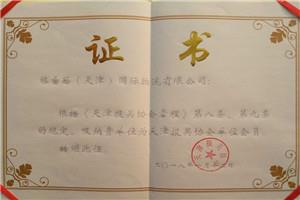 证书
（天津）国际物流有限公司：
依据《天津报关协会章程》第八条、第九条
的规定，吸纳贵单位为天津报关协会单位会员，
特颁此证。
二〇一八年 月 日